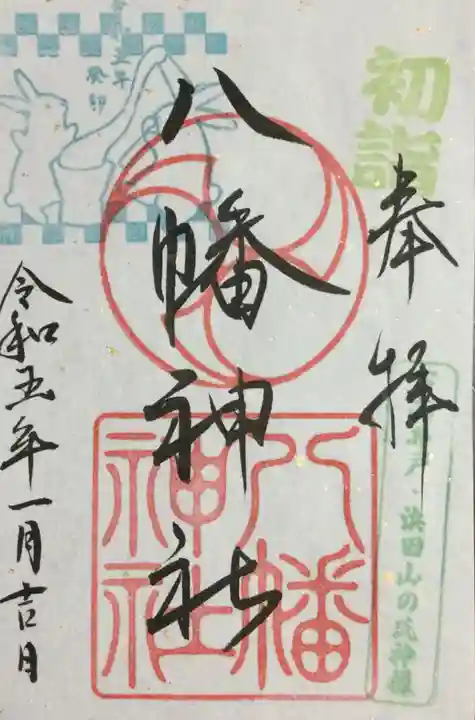 初詣
奉拝
下高井戸・浜田山の氏神様
八幡神社
八幡
神社
令和五年
癸卯
令和五年一月吉日